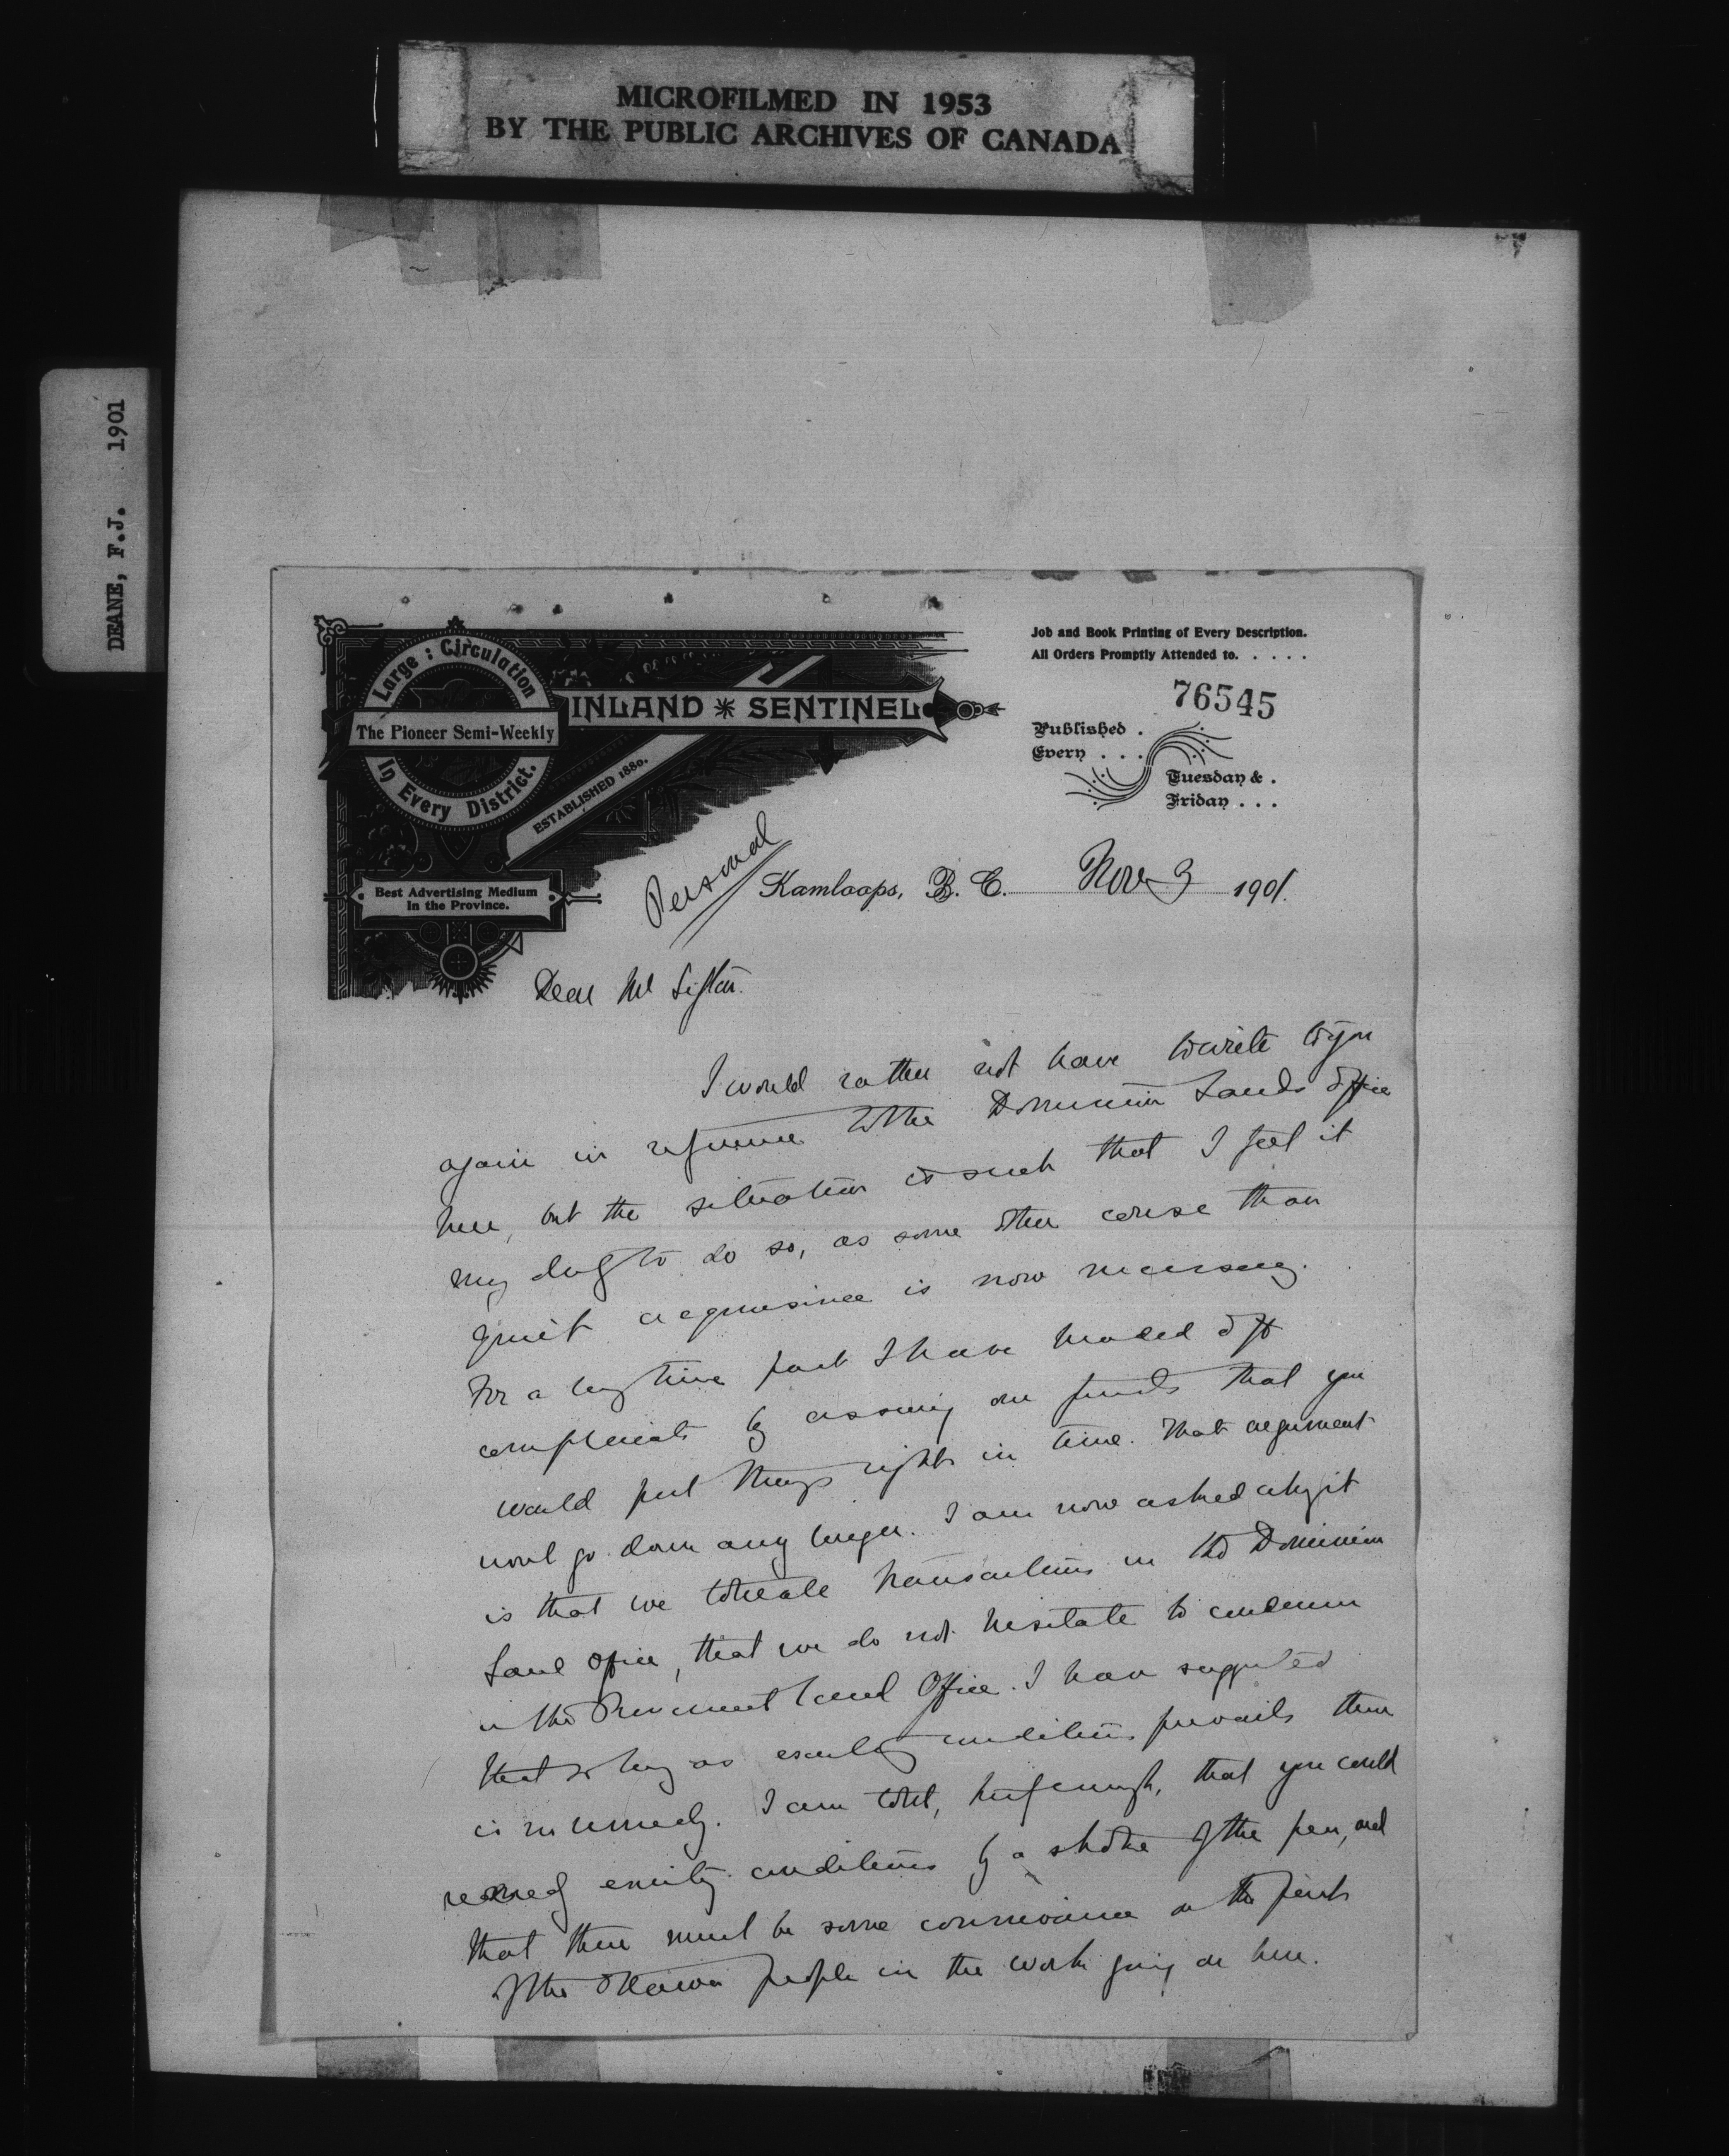 MICROFILMED IN 1953
BY THE PUBLIC ARCHIVES OF CANADA
DEANE, F.J. 1901
Large : Circulation
The Pioneer Semi-Weekly
In Every District.
INLAND * SENTINEL
ESTABLISHED 1880.
Best Advertising Medium
In the Province.
Job and Book Printing of Every Description.
All Orders Promptly Attended to. . . . .
76545
Published .
Every . . .
Tuesday & .
Friday . . .
Personal
Kamloops, B. C. Nov 9 1901.
Dear Mr Sifton.
I would rather not have to write to you
again in reference to the Dominion Lands Office
here, but the situation is such that I feel it
my duty to do so, as some other course than
quiet acquiescence is now necessary.
For a long time past I have headed off
complaints by assuring our friends that you
would put things right in time. That argument
wont go down any longer. I am now asked why it
is that we tolerate transactions in the Dominion
Land Office, that we do not hesitate to condemn
in the Provincial Land Office. I have suggested
that so long as existing conditions prevails there
is no remedy. I am told, that you could
remedy existing conditions by a stroke of the pen, and
that there must be some connivance on the part
of the Ottawa people in the work going on here.